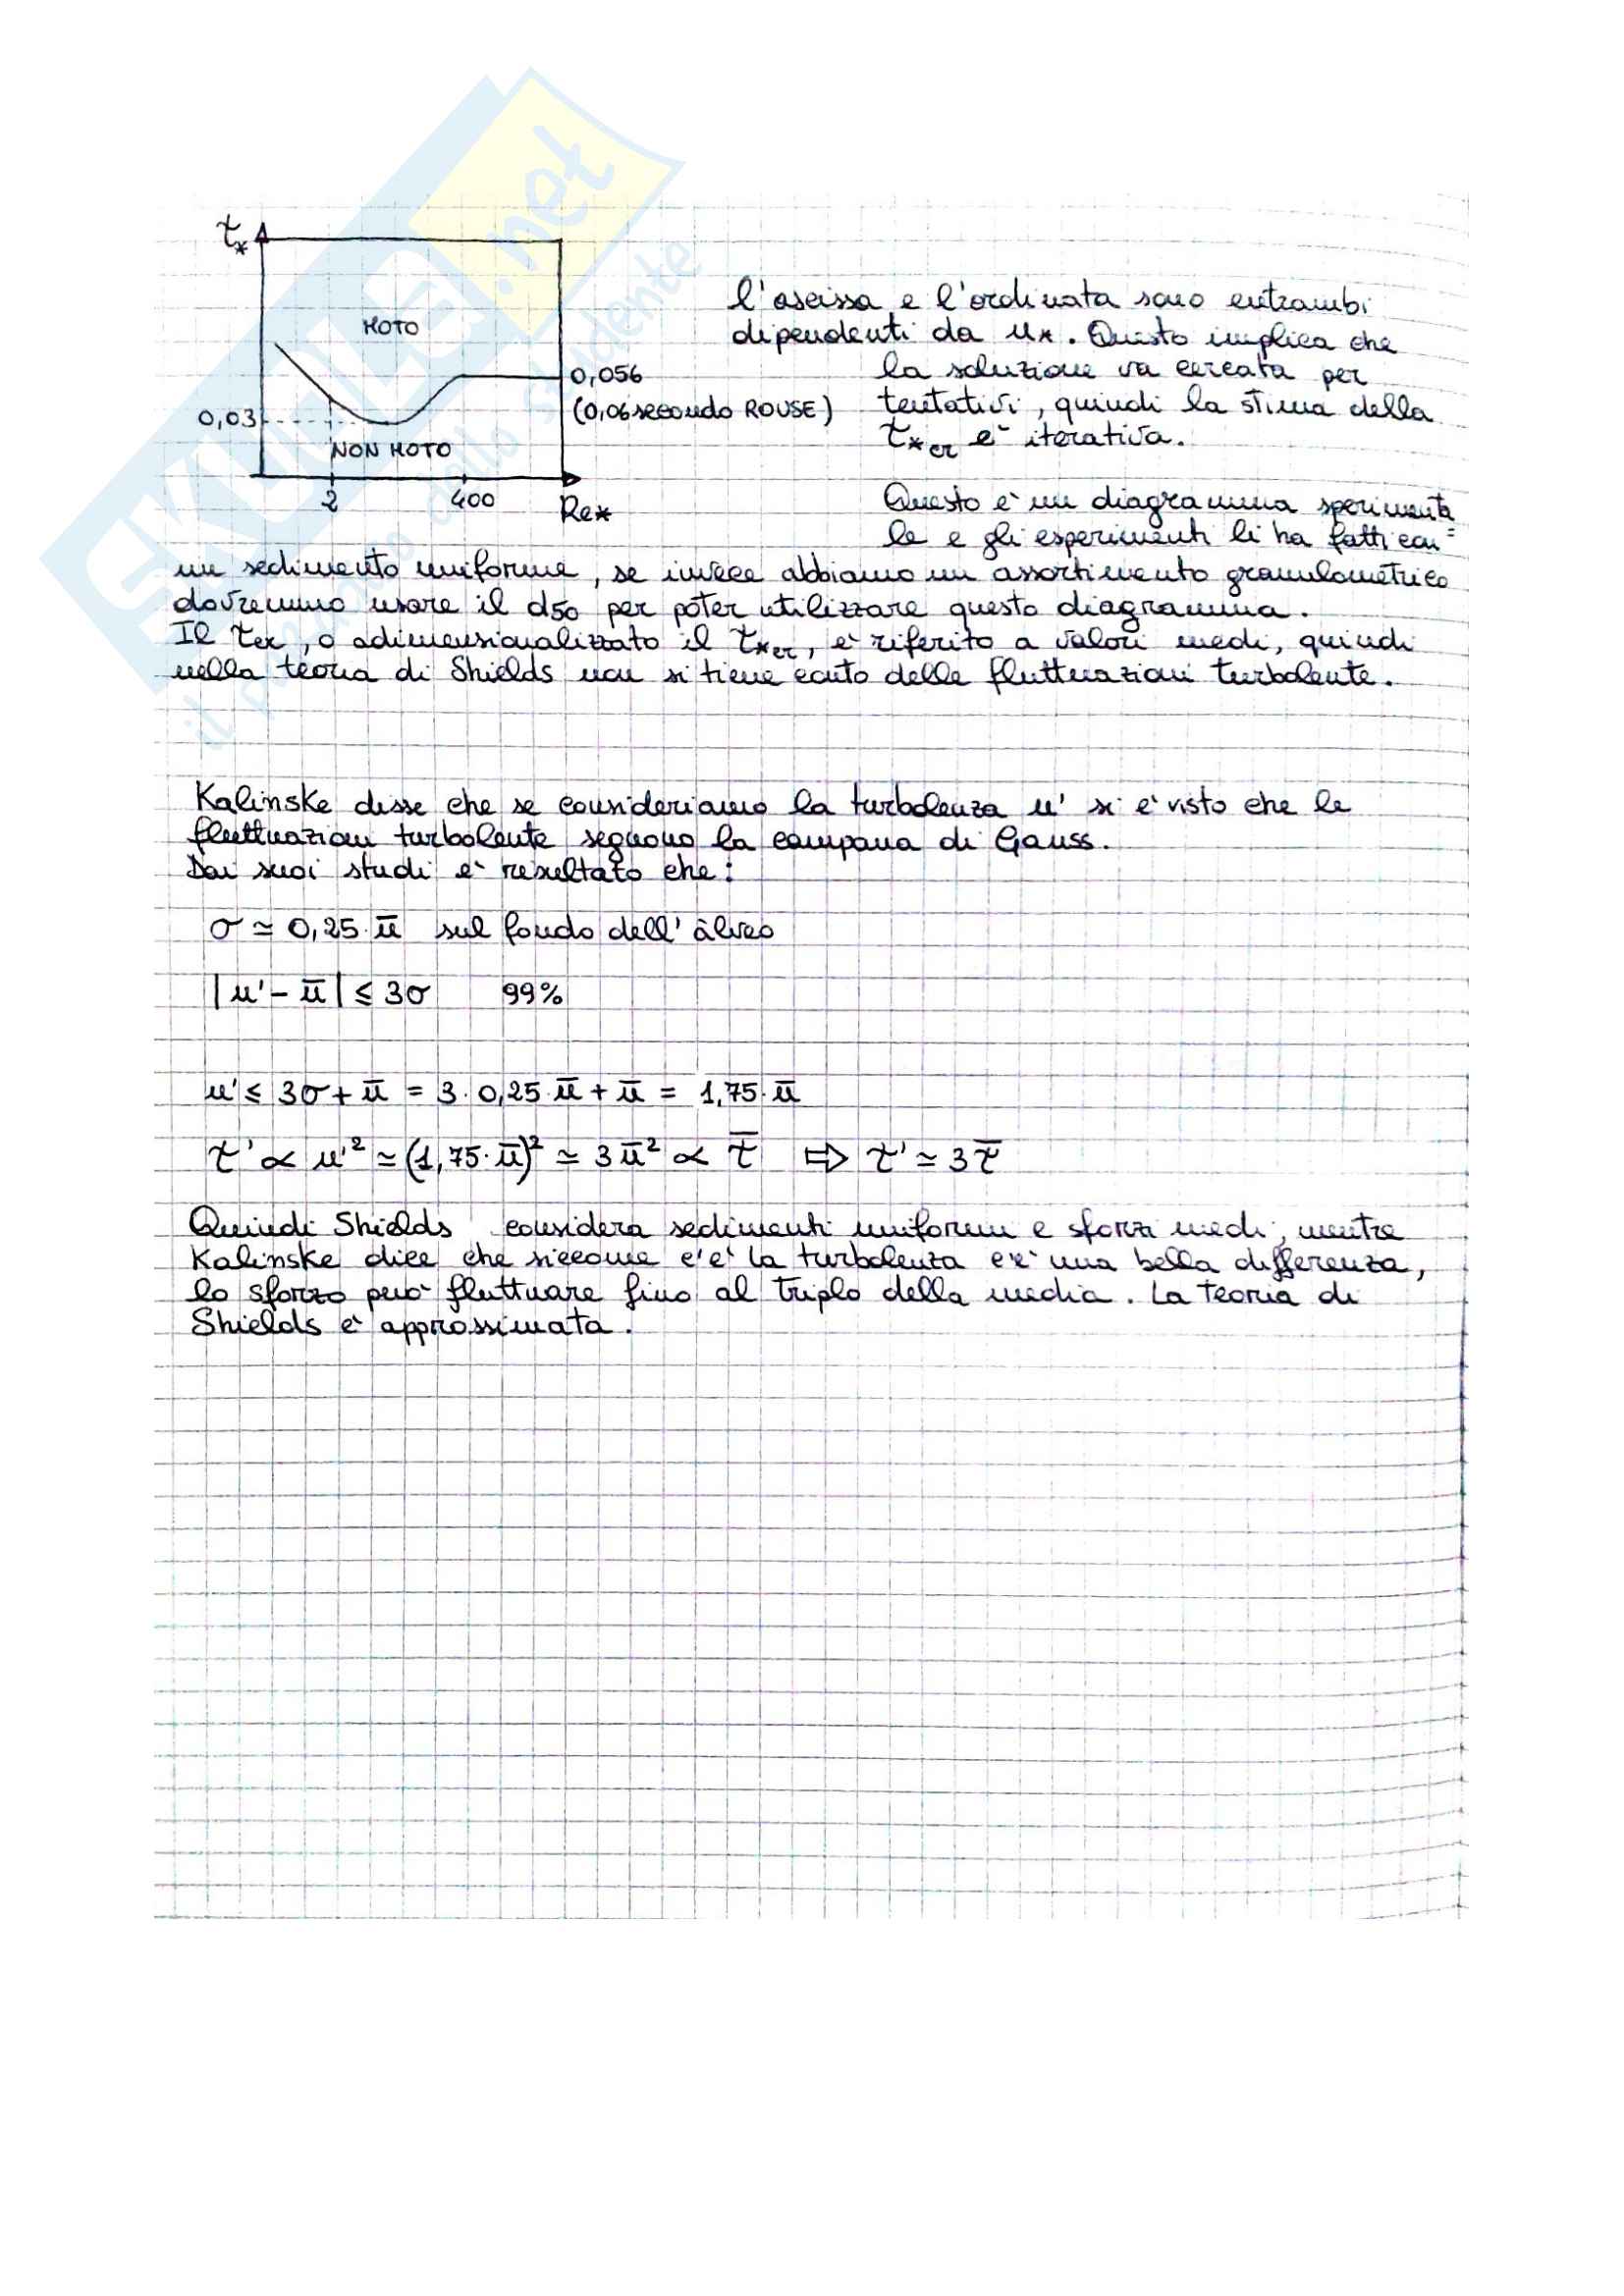 τ*
MOTO
0,056
(0,06 secondo ROUSE)
0,03
NON MOTO
2
400
Re*
l'ascissa e l'ordinata sono entrambi
dipendenti da u*. Questo implica che
la soluzione va cercata per
tentativi, quindi la stima della
τ*cr è iterativa.
Questo è un diagramma sperimenta
le e gli esperimenti li ha fatti con =
un sedimento uniforme, se invece abbiamo un assortimento granulometrico
dovremmo usare il d50 per poter utilizzare questo diagramma.
Il τcr, o adimensionalizzato il τ*cr, è riferito a valori medi, quindi
nella teoria di Shields non si tiene conto delle fluttuazioni turbolente.
Kalinske disse che se consideriamo la turbolenza u' si è visto che le
fluttuazioni turbolente seguono la campana di Gauss.
Dai suoi studi è risultato che:
σ ≃ 0,25·ū sul fondo dell'alveo
|u' - ū| ≤ 3σ 99%
u' ≤ 3σ + ū = 3·0,25·ū + ū = 1,75·ū
τ' ∝ u'² ≃ (1,75·ū)² ≃ 3ū² ∝ τ̄ ⇨ τ' ≃ 3τ̄
Quindi Shields considera sedimenti uniformi e sforzi medi, mentre
Kalinske dice che siccome c'è la turbolenza c'è una bella differenza,
lo sforzo può fluttuare fino al triplo della media. La teoria di
Shields è approssimata.
SKUOLA.net
il paradiso dello studente